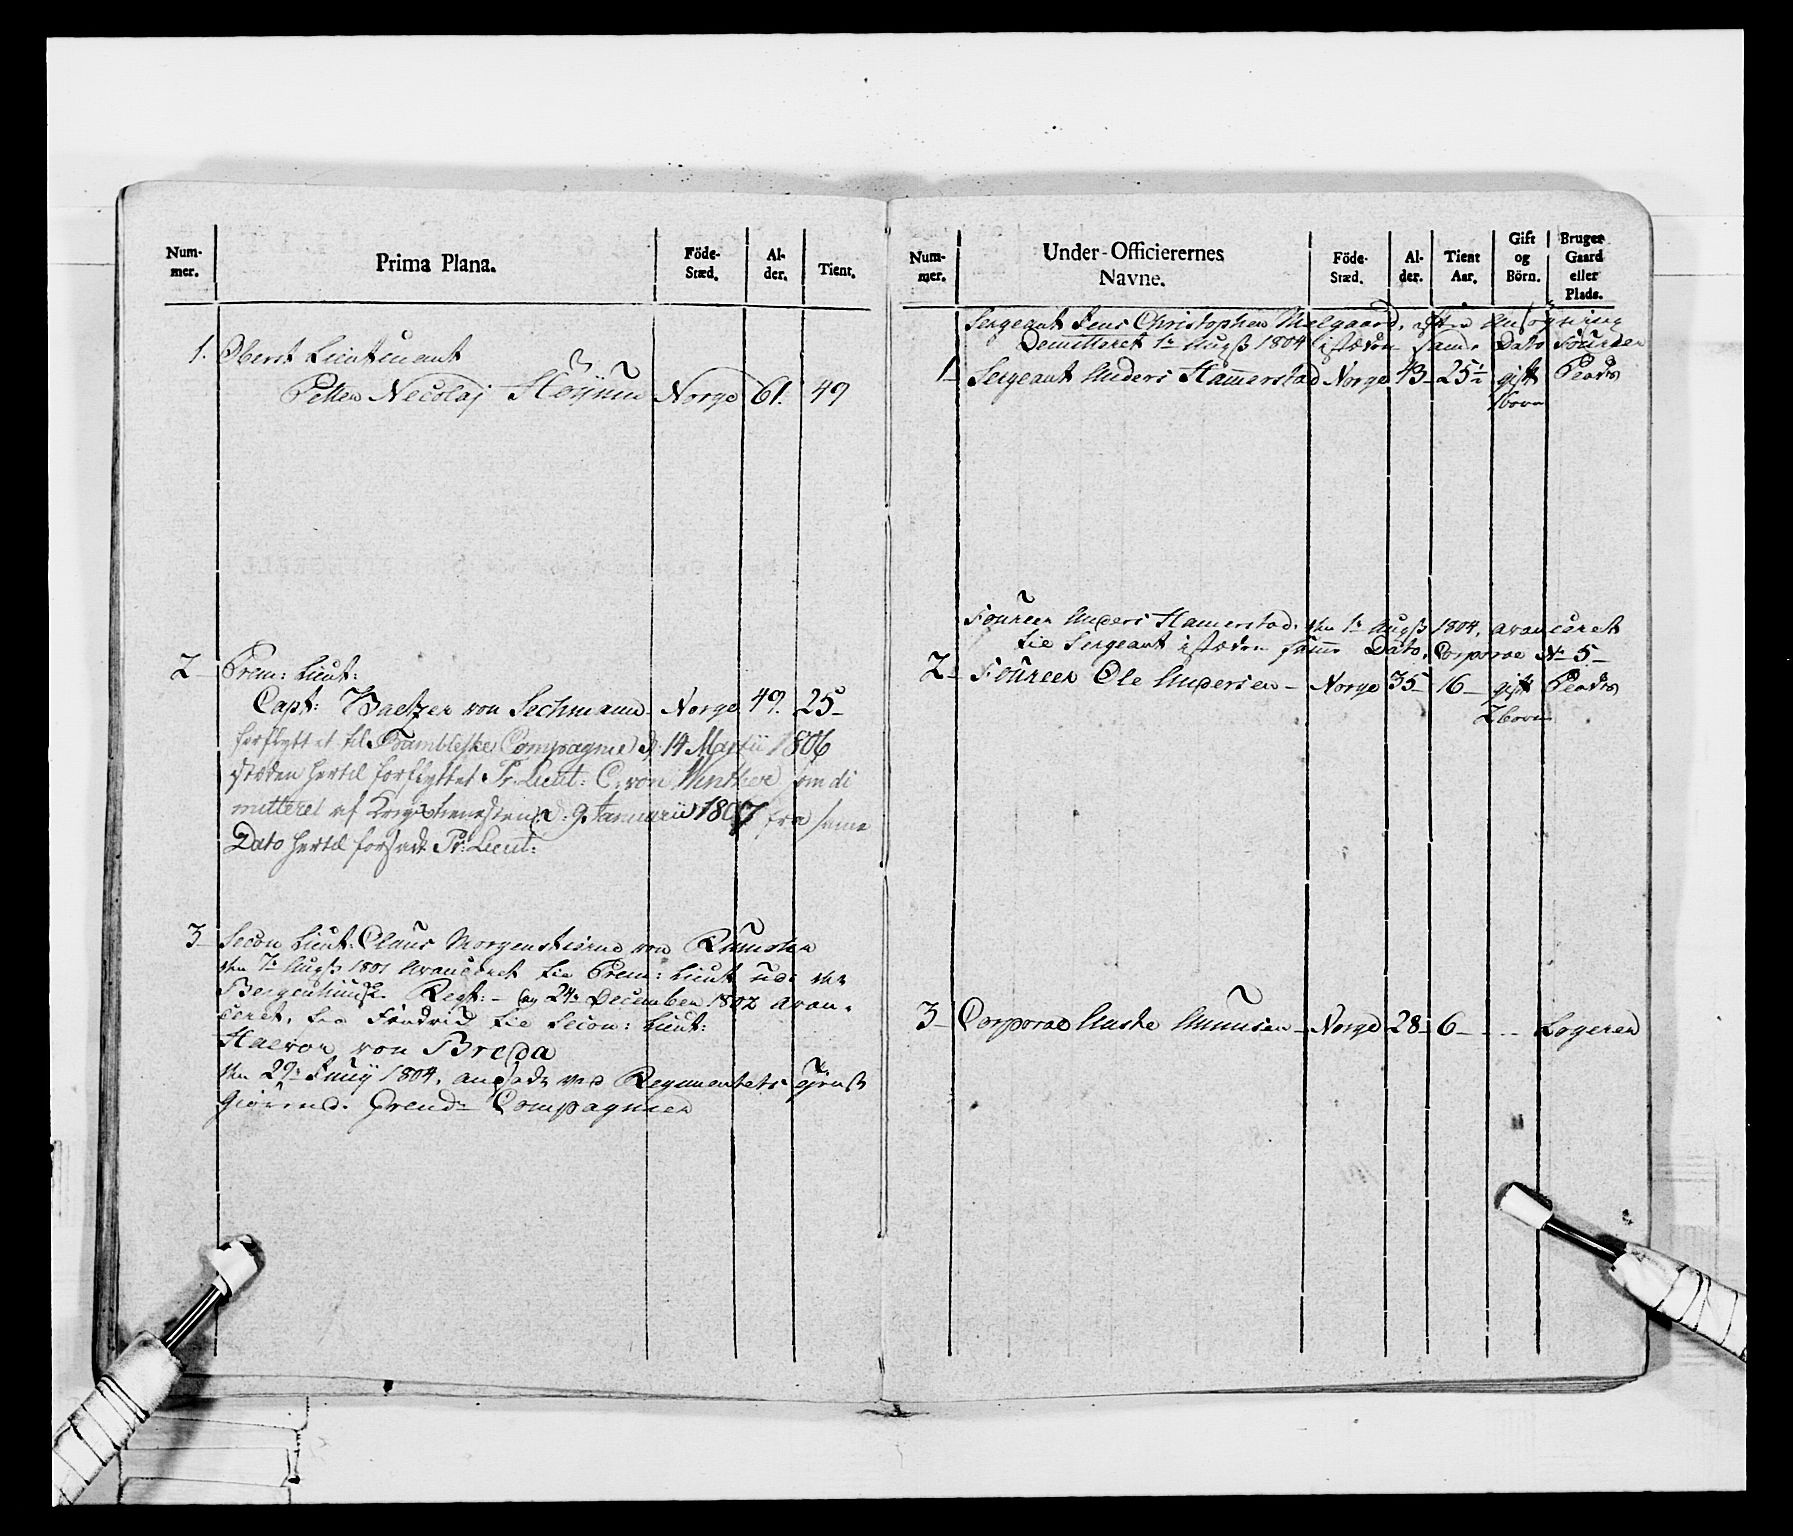 Num-
mer.
Prima Plana.
Föde-
Stæd.
Al-
der.
Tient.
1. Oberst Lieutenant
Petter Necolaj Norge 61. 49
2 Prem: Lieut:
Capt: von Norge 49. 25
forflyttet til Bambleske Compagnie d: 14 Martii 1806
i stæden hertil forflyttet Pr: Lieut: C. von Winther som di
mitteret af Krigstienesten d: 9 Januarii 1807 fra samme
Dato hertil forsadt Pr: Lieut:
3 Secon Lieut: Claus Morgenstierne von
den 7de Augst 1801 Avanceret til Prem: Lieut: ude
Bergenhuusk. Regt: - og 24de December 1802 avan-
ceret, til Secon: Lieut:
Halvor von Breda
den 29de Junij 1804, ansadt ved Regimentets
Giörend. Grend: Compagnier
Num-
mer.
Under-Officierernes
Navne.
Föde-
Stæd.
Al-
der.
Tient
Aar.
Gift
og
Börn.
Bruger
Gaard
eller
Plads.
Sergeant Jens Christopher Melgaard, efter Ansögning
Demitteret 1te Augst 1804 istæden samme Dato Fourier
1 Sergeant Anders Hamerstad Norge 43 25½ gift Plads
1 born
Fourier Anders Hamerstad, den 1te Augst 1804, avanceret
til Sergeant istæden samme Dato, Corporal No 5
2 Fourier Ole Andersen Norge 35 16 gift Plads
2 born
3 Corporal Amunsen Norge 28 6 - - Logerer